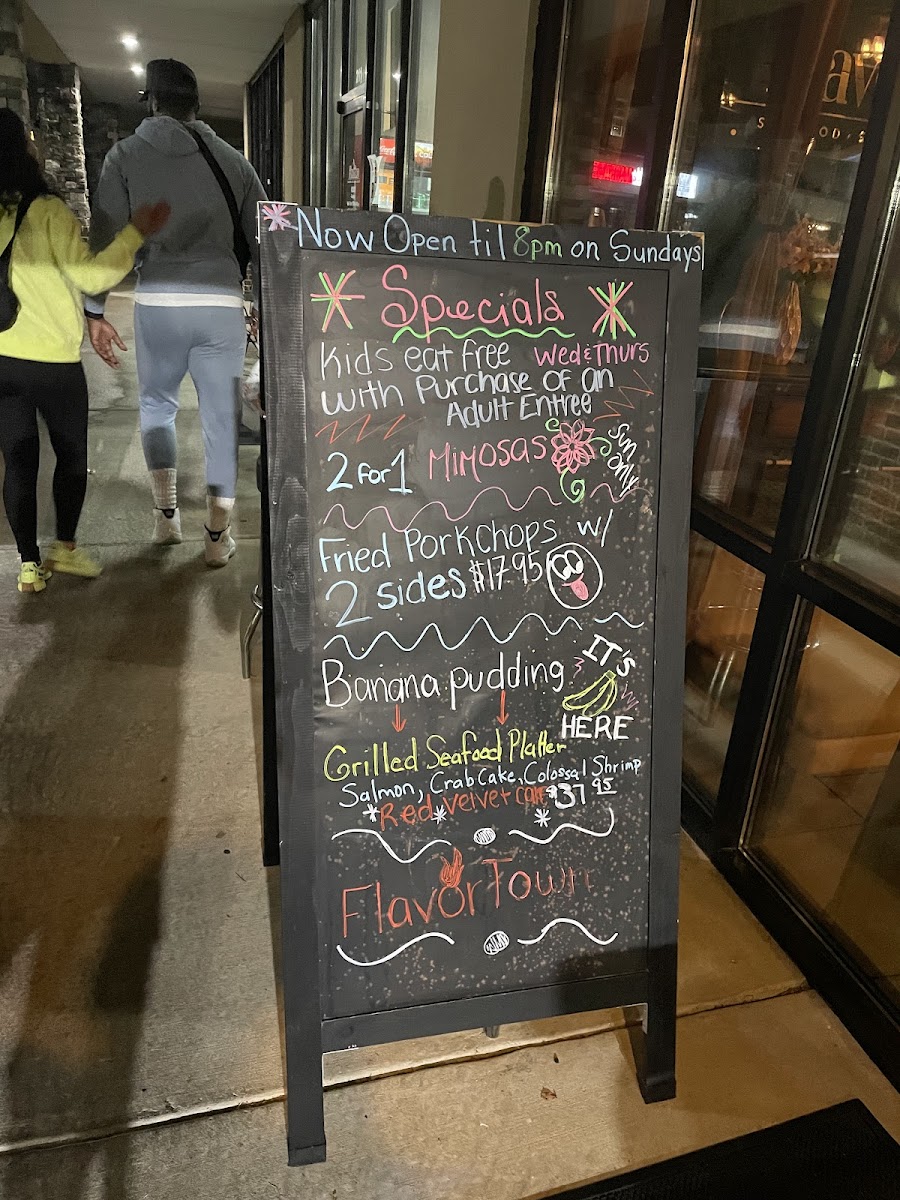 Now Open til 8pm on Sundays
Specials
Kids eat free Wed & Thurs
with Purchase of an
Adult Entree
2 for 1 Mimosas
Sun only
Fried Porkchops w/
2 sides $17.95
Banana pudding
IT'S
HERE
Grilled Seafood Platter
Salmon, Crab Cake, Colossal Shrimp
*Red velvet cake $37.95
Flavor Town